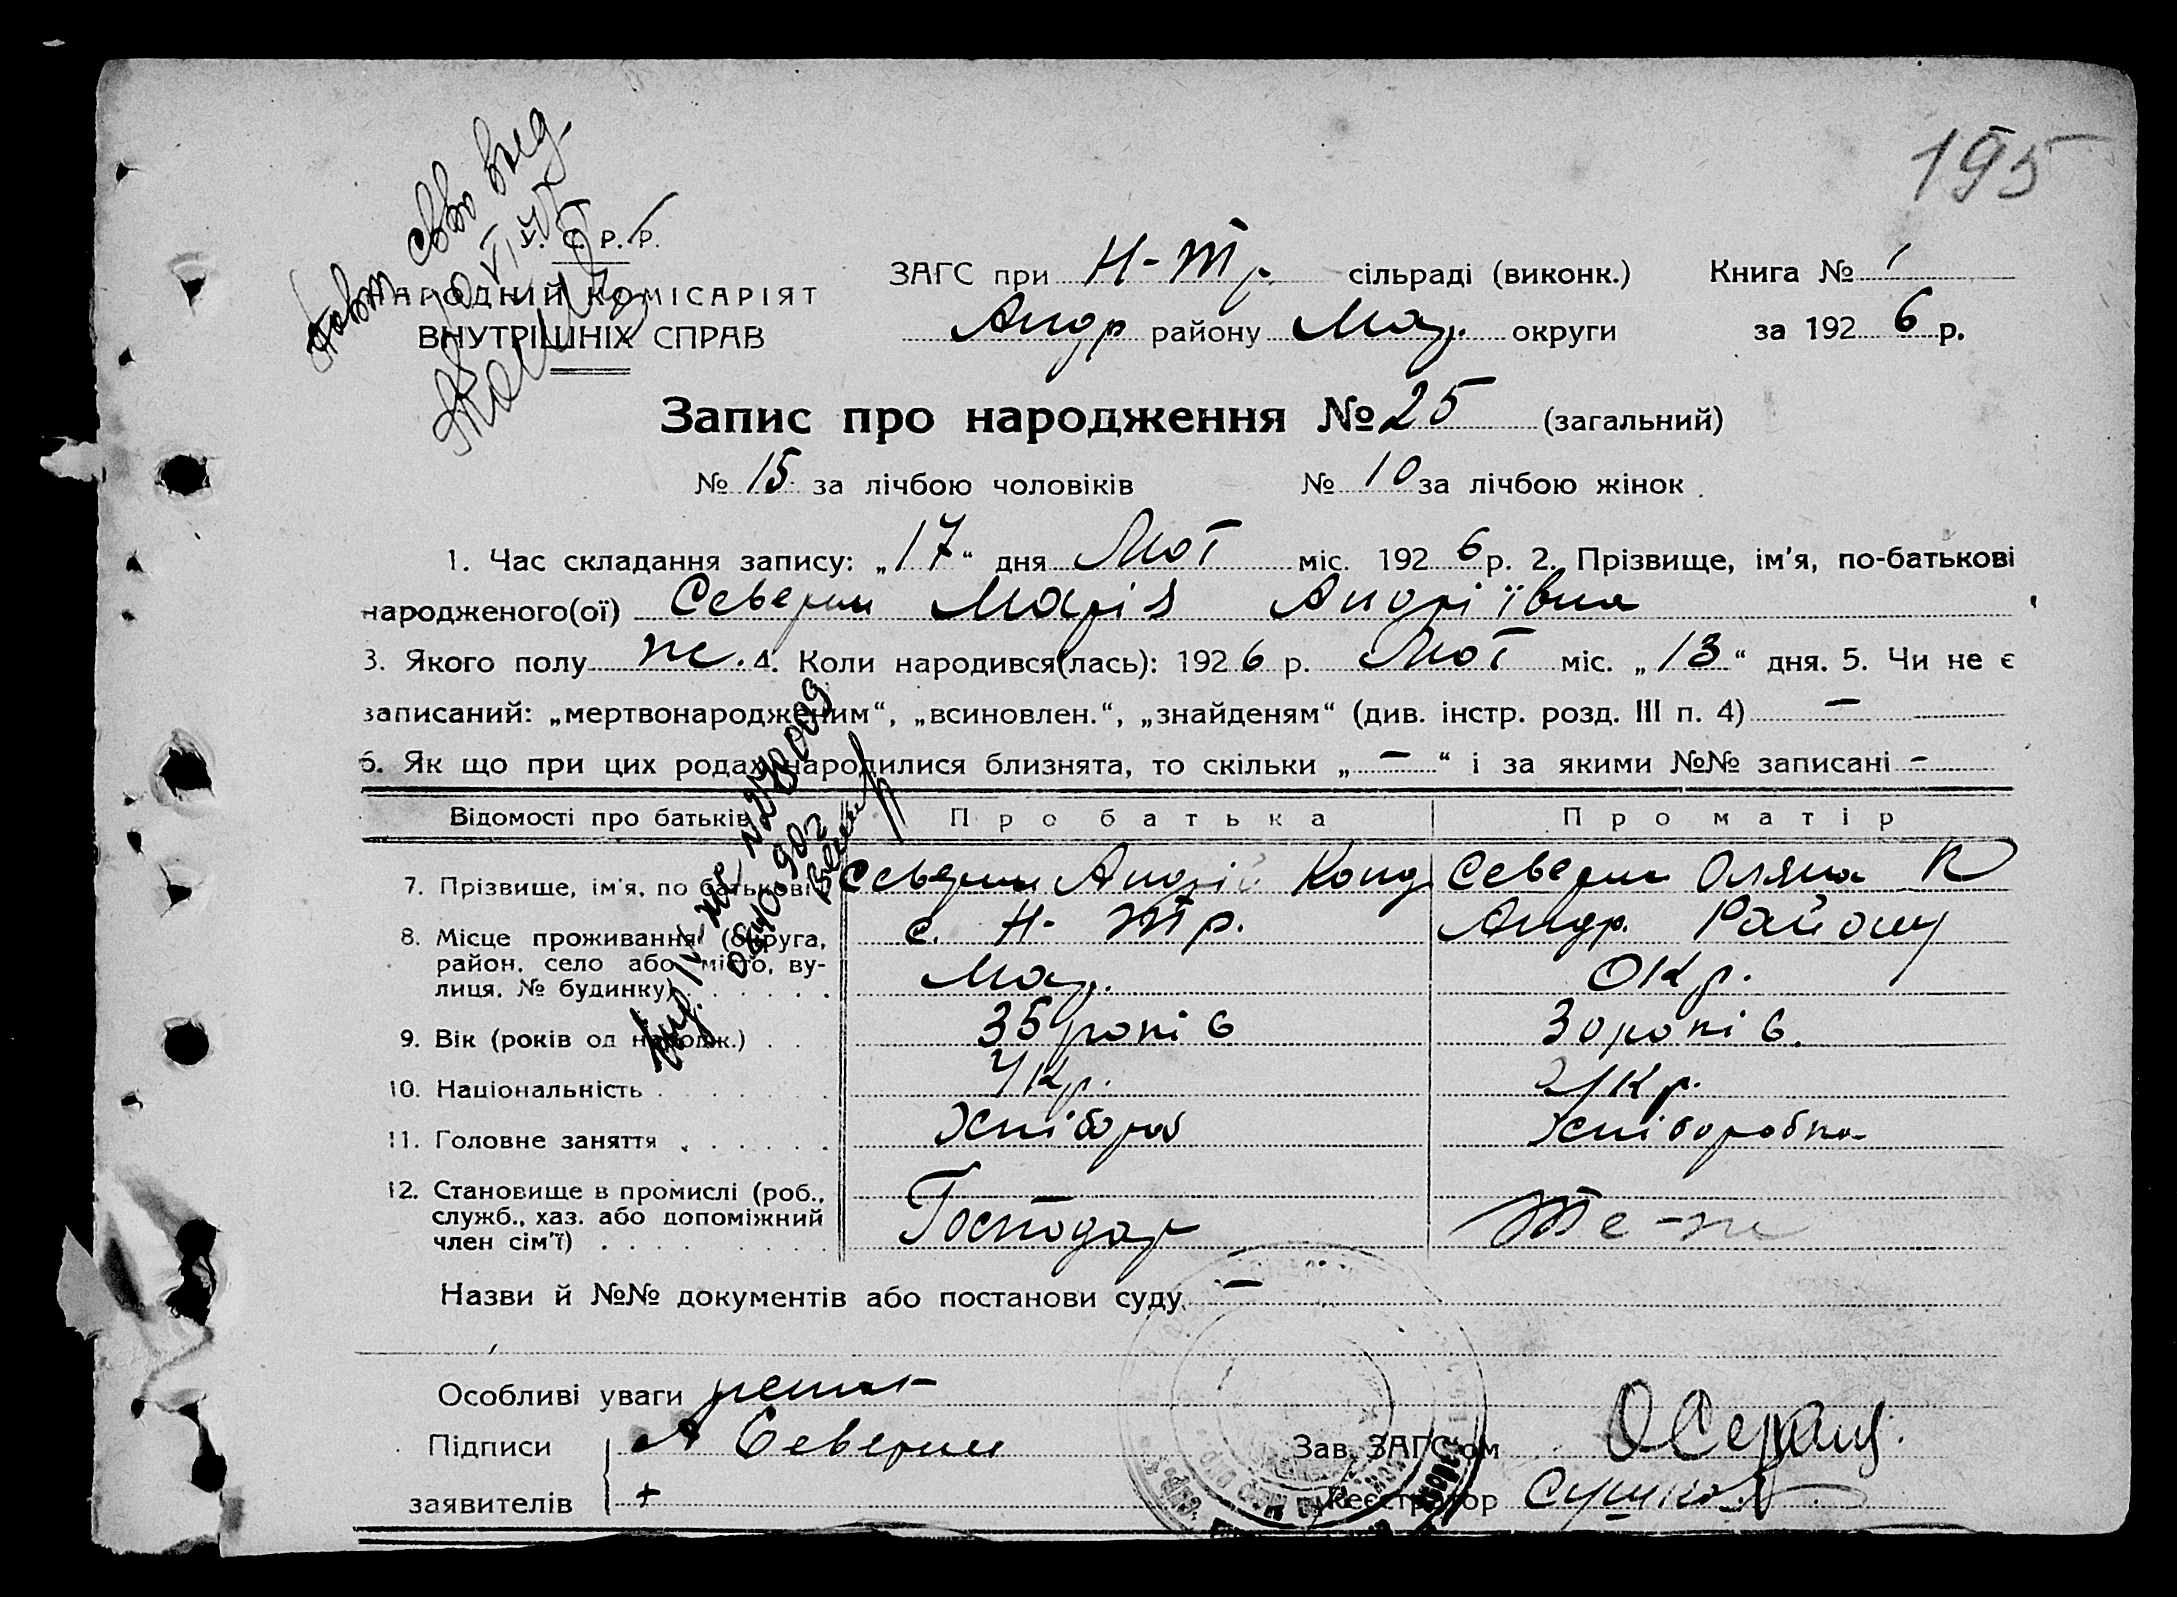 195
У. С. Р. Р.
НАРОДНІЙ КОМІСАРІЯТ
ВНУТРІШНІХ СПРАВ
ЗАГС при Н-Тр. сільраді (виконк.) Книга № 1
Андр району Мар. округи за 1926 р.
Запис про народження № 25 (загальний)
№ 15 за лічбою чоловіків № 10 за лічбою жінок
1. Час складання запису: „17“ дня Лют міс. 1926 р. 2. Прізвище, ім'я, по-батькові
народженого(ої) Северин Марія Андріївна
3. Якого полу ж. 4. Коли народився(лась): 1926 р. Лют міс. „13“ дня. 5. Чи не є
записаний: „мертвонародженим“, „всиновлен.“, „знайденям“ (див. інстр. розд. III п. 4) —
6. Як що при цих родах народилися близнята, то скільки „—“ і за якими №№ записані -
Відомості про батьків Про батька Про матір
7. Прізвище, ім'я, по батькові Северин Андрій Конд Северин Оляна К
8. Місце проживання (округа, с. Н- Тр. Андр. Району
район, село або місто, ву- Мар. Окр.
лиця, № будинку)
9. Вік (років од народж.) 35 років 30 років.
10. Національність Укр. Укр.
11. Головне заняття Хлібороб Хліборобка
12. Становище в промислі (роб., служб., хаз. або допоміжний член сім'ї) Господар Те-ж
Назви й №№ документів або постанови суду —
Особливі уваги
Підписи А Северин Зав. ЗАГС'ом
заявителів + Реєстратор